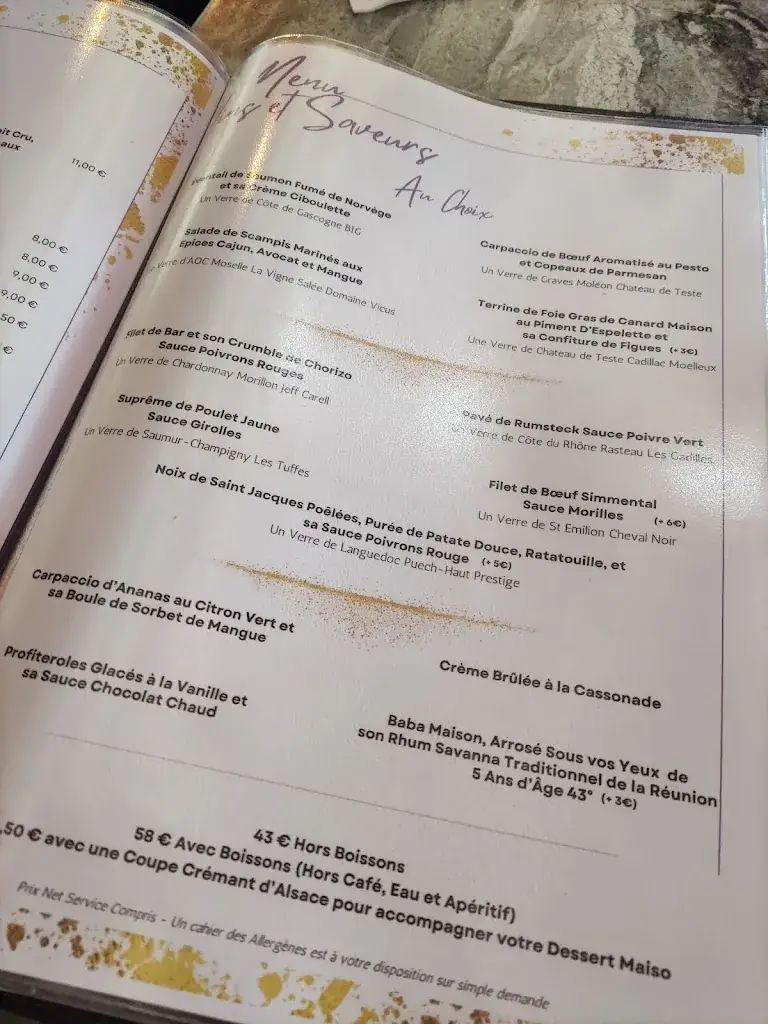 11,00 €
8,00 €
8,00 €
9,00 €
9,00 €
50 €
€
Menu
et Saveurs
Au Choix
de Saumon Fumé de Norvège
et sa Crème Ciboulette
Un Verre de Côte de Gascogne BIG
Salade de Scampis Marinés aux
Epices Cajun, Avocat et Mangue
Verre d'AOC Moselle La Vigne Salée Domaine Vicus
Carpaccio de Bœuf Aromatisé au Pesto
et Copeaux de Parmesan
Un Verre de Graves Moléon Chateau de Teste
Terrine de Foie Gras de Canard Maison
au Piment D'Espelette et
sa Confiture de Figues (+ 3€)
Une Verre de Chateau de Teste Cadillac Moelleux
Filet de Bar et son Crumble de Chorizo
Sauce Poivrons Rouges
Un Verre de Chardonnay Morillon Jeff Carell
Suprême de Poulet Jaune
Sauce Girolles
Un Verre de Saumur-Champigny Les Tuffes
Pavé de Rumsteck Sauce Poivre Vert
Un Verre de Côte du Rhône Rasteau Les Gadilles
Filet de Bœuf Simmental
Sauce Morilles (+ 6€)
Un Verre de St Emilion Cheval Noir
Noix de Saint Jacques Poêlées, Purée de Patate Douce, Ratatouille, et
sa Sauce Poivrons Rouge (+ 5€)
Un Verre de Languedoc Puech-Haut Prestige
Carpaccio d'Ananas au Citron Vert et
sa Boule de Sorbet de Mangue
Profiteroles Glacés à la Vanille et
sa Sauce Chocolat Chaud
Crème Brûlée à la Cassonade
Baba Maison, Arrosé Sous vos Yeux de
son Rhum Savanna Traditionnel de la Réunion
5 Ans d'Âge 43° (+ 3€)
43 € Hors Boissons
58 € Avec Boissons (Hors Café, Eau et Apéritif)
,50 € avec une Coupe Crémant d'Alsace pour accompagner votre Dessert Maiso
Prix Net Service Compris - Un cahier des Allergènes est à votre disposition sur simple demande